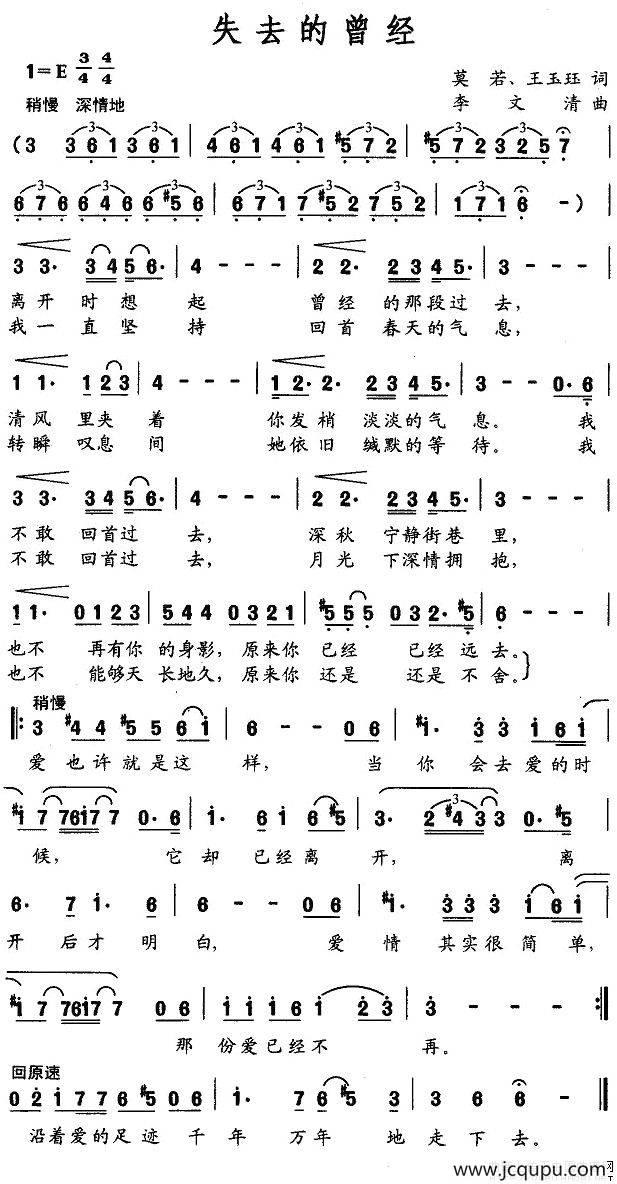 失去的曾经
1=E 3/4 4/4
莫 若、王玉珏 词
稍慢 深情地
李 文 清 曲
(3 361 361 | 461 461 #572 | #572 325 7 |
676 646 6#56 | 671 7#52 752 | 171 6 -) |
3 3· 34 5 6· | 4 - - - | 2 2· 23 4 5· | 3 - - - |
离开 时想 起 曾经 的那段过 去,
我一 直坚 持 回首 春天的气 息,
1 1· 1 2 3 | 4 - - - | 1 2· 2· 23 4 5· | 3 - - 0·6 |
清风 里夹 着 你发梢 淡淡的气 息。 我
转瞬 叹息 间 她依旧 缄默的等 待。 我
3 3· 34 5 6· | 4 - - - | 2 2· 23 4 5· | 5 - - - |
不敢 回首过 去, 深秋 宁静街巷 里,
不敢 回首过 去, 月光 下深情拥 抱,
1 1· 0123 | 544 0321 | #5 5 5 032·#5 | 6 - - - |
也不 再有你 的身影, 原来你 已经 已经 远去。
也不 能够天 长地久, 原来你 还是 还是 不舍。
稍慢
3 #4 4 #5 5 6 1 | 6 - - 06 | #1· 3 3 1 6 1 |
爱也许就是这 样, 当 你 会去爱的时
#1 7 7617 7 0·6 | 1· 6 61 6#5 | 3· 2#43 3 0·#5 |
候, 它却已经离 开, 离
6· 7 1· 6 | 6 - - 06 | #1· 3 3 3 1 6 1 |
开后才明白, 爱 情 其实很简单,
#1 7 7617 7 06 | 1 1 1 6 1 2·3 | 3 - - - :|
那 份爱已经不 再。
回原速
02 1 7 7 6 #5 06 | 1· 7 6 #5 3 | 3 6 6 - |
沿着爱的足迹 千年 万年 地走下去。
www.jcqupu.com